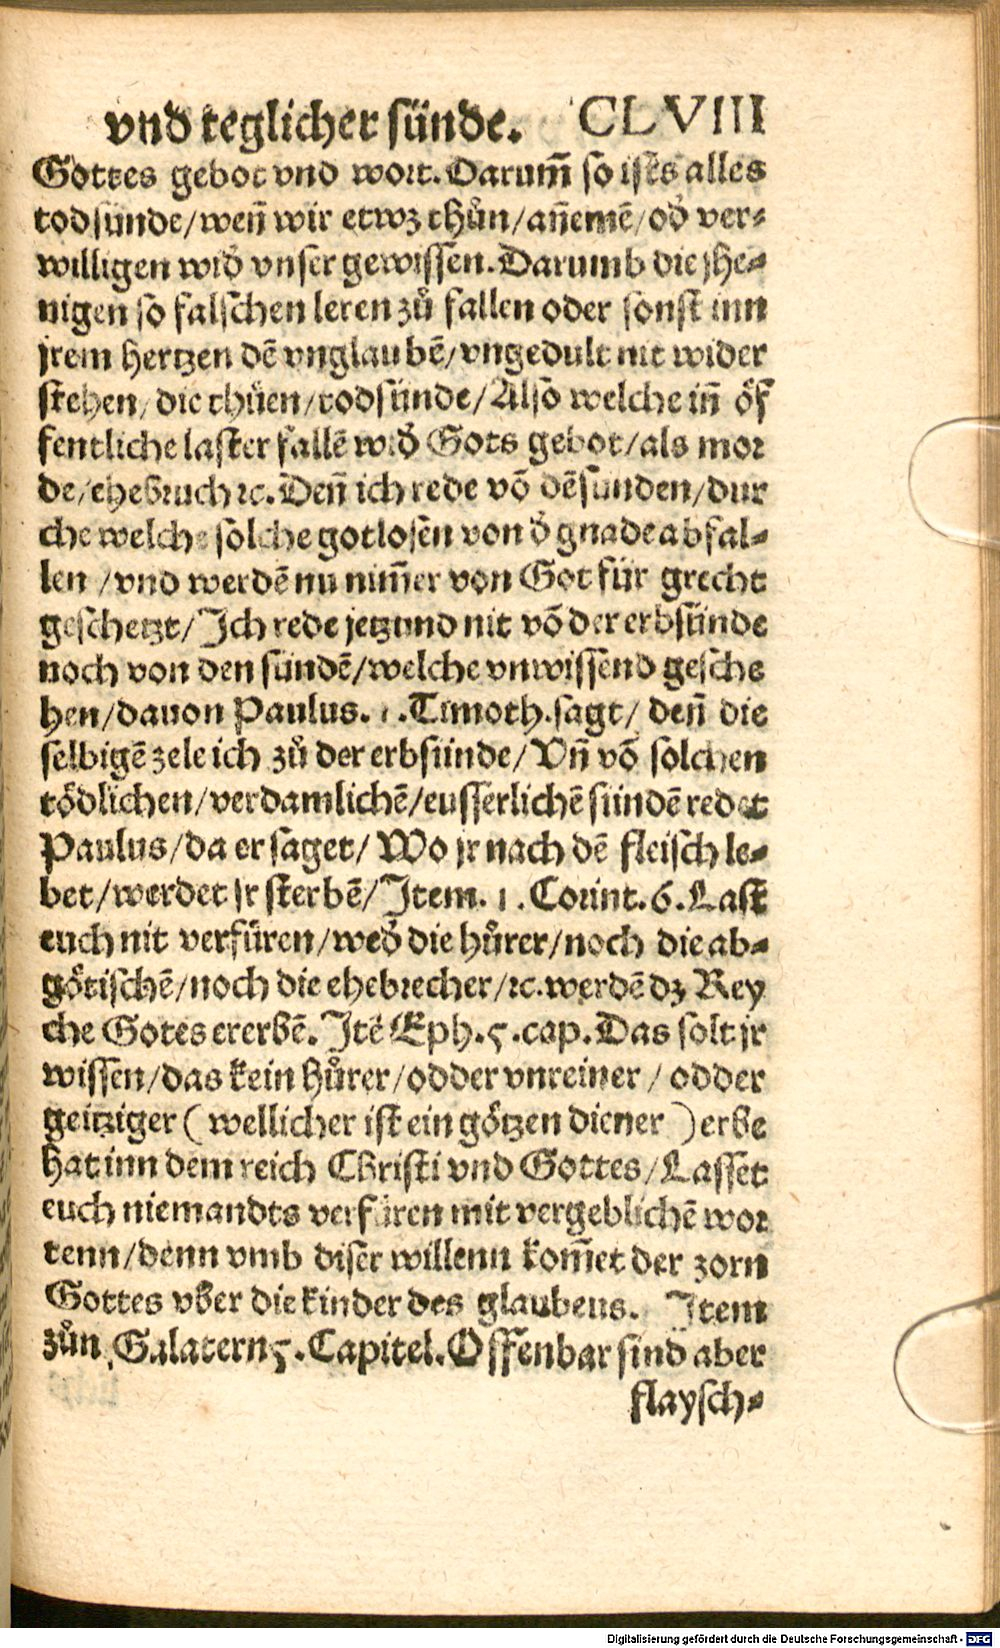 vnd teglicher sünde. CLVIII
Gottes gebot vnd wort. Darum̃ so ists alles
todsünde/wen̄ wir etwz thůn/an̄emē/od̓ ver⸗
willigen wid̓ vnser gewissen. Darumb die jhe⸗
nigen so falschen leren zů fallen oder sonst inn
jrem hertzen dē vnglaubē/vngedult nit wider
stehen/die thůen/todsünde/Also welche in̄ öf
fentliche laster fallē wid̓ Gots gebot/als mor
de/ehebruch ꝛc. Den̄ ich rede vō dē sünden/dur
che welche solche gotlosen von d̓ gnade abfal⸗
len /vnd werdē nu nim̄er von Got für grecht
geschetzt/Ich rede jetzund nit vō der erbsünde
noch von den sündē/welche vnwissend gesche
hen/dauon Paulus. 1. Timoth. sagt/ den̄ die
selbigē zele ich zů der erbsünde/Vn̄ vō solchen
tödlichen/verdamlichē/eusserlichē sündē redet
Paulus/da er saget/ Wo jr nach dē fleisch le⸗
bet/werdet jr sterbē/Item. 1. Corint. 6. Last
euch nit verfüren/wed̓ die hůrer/noch die ab⸗
götischē/noch die ehebrecher/ꝛc. werdē dz Rey
che Gotes ererbē. Itē Eph. 5. cap. Das solt jr
wissen/das kein hůrer/odder vnreiner / odder
geitziger ( wellicher ist ein götzen diener ) erbe
hat inn dem reich Christi vnd Gottes/Lasset
euch niemandts verfüren mit vergeblichē wor
tenn/denn vmb diser willenn kom̄et der zorn
Gottes vber die kinder des glaubens. Item
zůn Galatern 5. Capitel. Offenbar sind aber
flaysch⸗
Digitalisierung gefördert durch die Deutsche Forschungsgemeinschaft - DFG